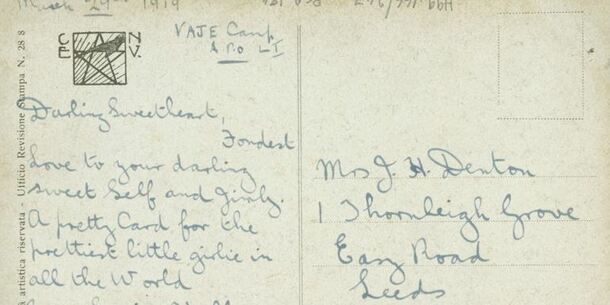 March 29th 1919
VAJE Camp
APO L I
C E N V.
Darling Sweetheart,
Fondest
Love to your darling
Sweet Self and Girly.
A pretty Card for the
prettiest little girlie in
all the World
Mrs J. H. Denton
1 Thornleigh Grove
Easy Road
Leeds
artistica riservata - Ufficio Revisione Stampa N. 28 8